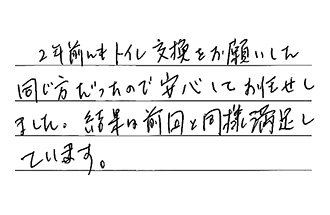 2年前にもトイレ交換をお願いした
同じ方だったので安心してお任せし
ました。結果は前回と同様満足し
ています。